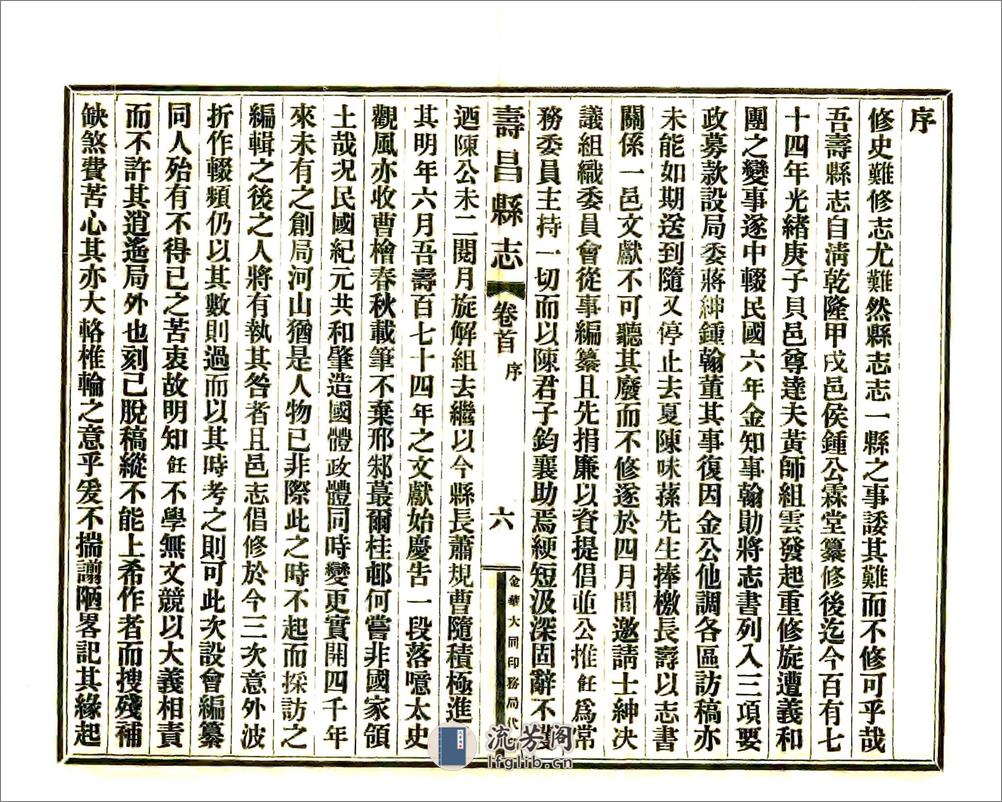 序
修史難修志尤難然縣志志一縣之事諉其難而不修可乎哉
吾壽縣志自淸乾隆甲戌邑侯鍾公霖堂纂修後迄今百有七
十四年光緒庚子貝邑尊達夫黃師組雲發起重修旋遭義和
團之變事遂中輟民國六年金知事翰勛將志書列入三項要
政募款設局委蔣紳鍾翰董其事復因金公他調各區訪稿亦
未能如期送到隨又停止去夏陳味蓀先生捧檄長壽以志書
關係一邑文獻不可聽其廢而不修遂於四月間邀請士紳決
議組織委員會從事編纂且先捐廉以資提倡並公推飪爲常
務委員主持一切而以陳君子鈞襄助焉綆短汲深固辭不
壽昌縣志 卷首 序 六 金華大同印務局代
迺陳公未二閱月旋解組去繼以今縣長蕭規曹隨積極進
其明年六月吾壽百七十四年之文獻始慶告一段落噫太史
觀風亦收曹檜春秋載筆不棄邢邾蕞爾桂邨何嘗非國家領
土哉况民國紀元共和肇造國體政體同時變更實開四千年
來未有之創局河山猶是人物已非際此之時不起而採訪之
編輯之後之人將有執其咎者且邑志倡修於今三次意外波
折作輟頻仍以其數則過而以其時考之則可此次設會編纂
同人殆有不得已之苦衷故明知飪不學無文競以大義相責
而不許其逍遙局外也刻已脫稿縱不能上希作者而搜殘補
缺煞費苦心其亦大輅椎輪之意乎爰不揣譾陋畧記其緣起
流芳阁
lfglib.cn